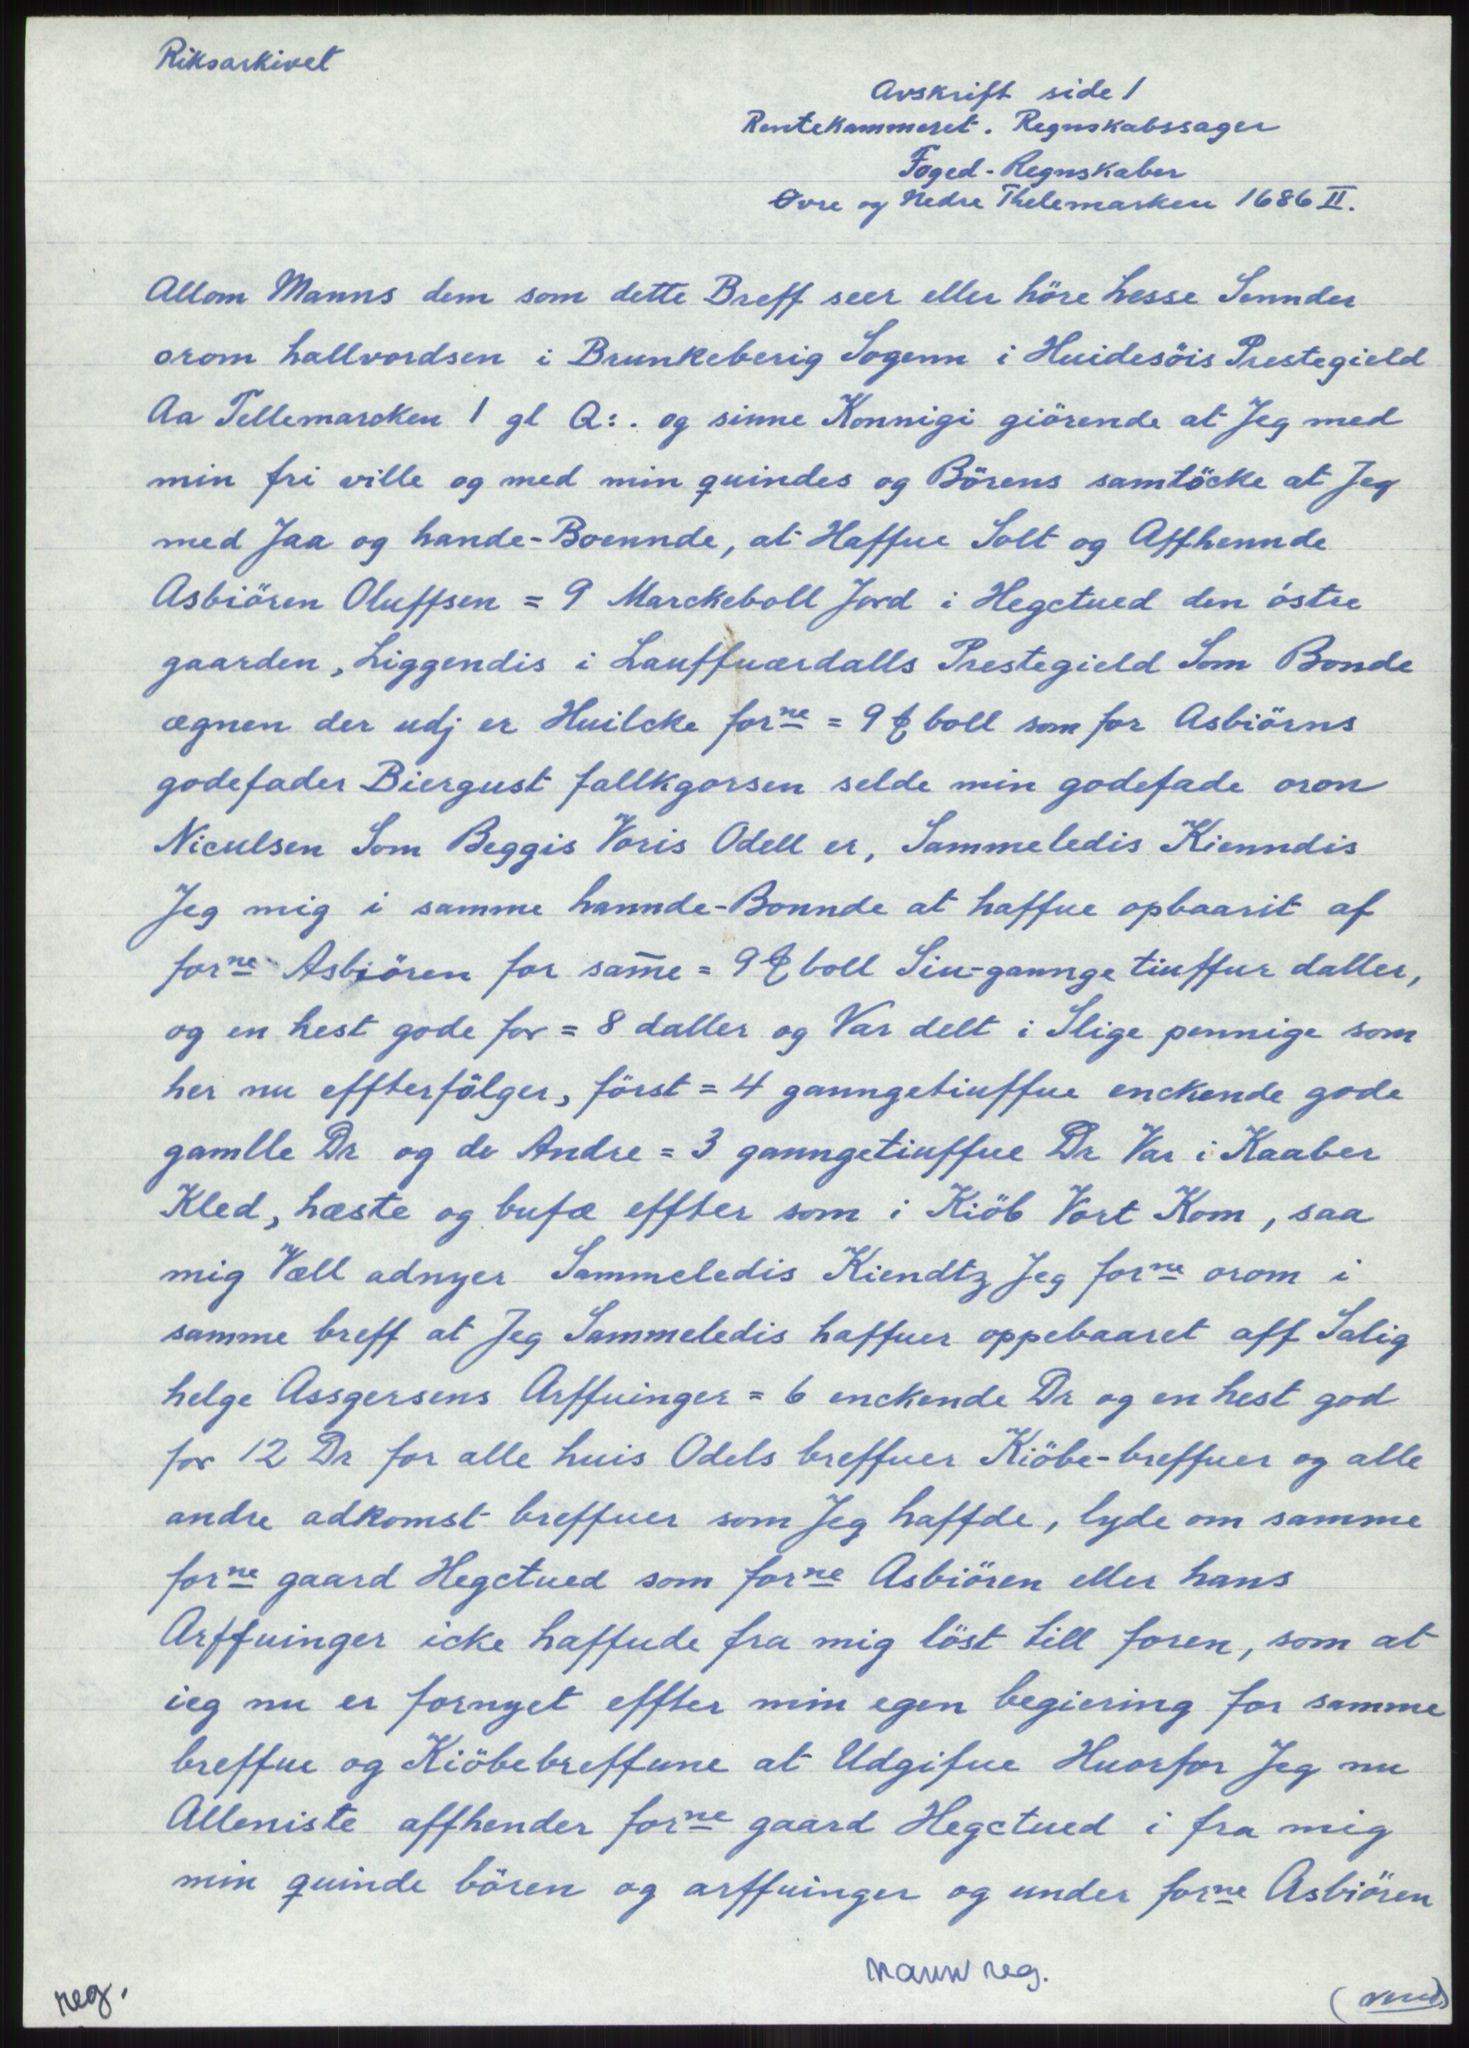 Riksarkivet
Avskrift side 1
Rentekammeret. Regnskabssager
Foged-Regnskaber
Øvre og Nedre Thelemarken 1686 II.
Allom Manns dem som dette Breff seer eller höre hesse Sennder
orom hallvordsen i Brunkeberig Sogenn i Huidesöis Prestegield
Aa Tellemarcken 1 gl Q:. og sinne Konnigi giörende at Jeg med
min fri ville og med min quindes og Börens samtöcke at Jeg
med Jaa og hande-Boennde, at Haffue Solt og Affhennde
Asbiören Oluffsen = 9 Marckeboll Jord i Hegctued den östre
gaarden, Liggendis i Lauffuærdalls Prestegield Som Bonde
ægnen der udj er Huilcke forne = 9 boll som for Asbiörns
godefader Biergust fallkgorsen selde min godefade oron
Niculsen Som Beggis Voris Odell er, Sammeledis Kienndis
Jeg mig i samme hannde-Bonnde at haffue opbaarit af
forne Asbiören for sam̄e = 9 boll Siu-gaunge tiuffur daller,
og en hest gode for = 8 daller og Var delt i Slige pennige som
her nu effterfölger, först = 4 gaungetiuffue enckende gode
gamlle Dr og de Andre = 3 gaungetiuffue Dr Var i Kaaber
Kled, hæste og bufæ effter som i Kiöb Vort Kom, saa
mig Væll adnyer Sammeledis Kiendtz Jeg forne orom i
samme breff at Jeg Sammeledis haffuer oppebaaret aff Salig
helge Assgersens Arffuinger = 6 enckende Dr og en hest god
for 12 Dr for alle huis Odels breffuer Kiöbe-breffuer og alle
andre adkomst breffuer som Jeg haffde, lyde om samme
forne gaard Hegctued som forne Asbiören eller hans
Arffuinger icke haffude fra mig löst till foren, som at
ieg nu er fornyet effter min egen begiering for samme
breffue og Kiöbebreffune at Udgifue Huorfor Jeg nu
Alleniste affhender forne gaard Hegctued i fra mig
min quinde bören og arffuinger og under forne Asbiören
navn reg.
reg.
(vend)